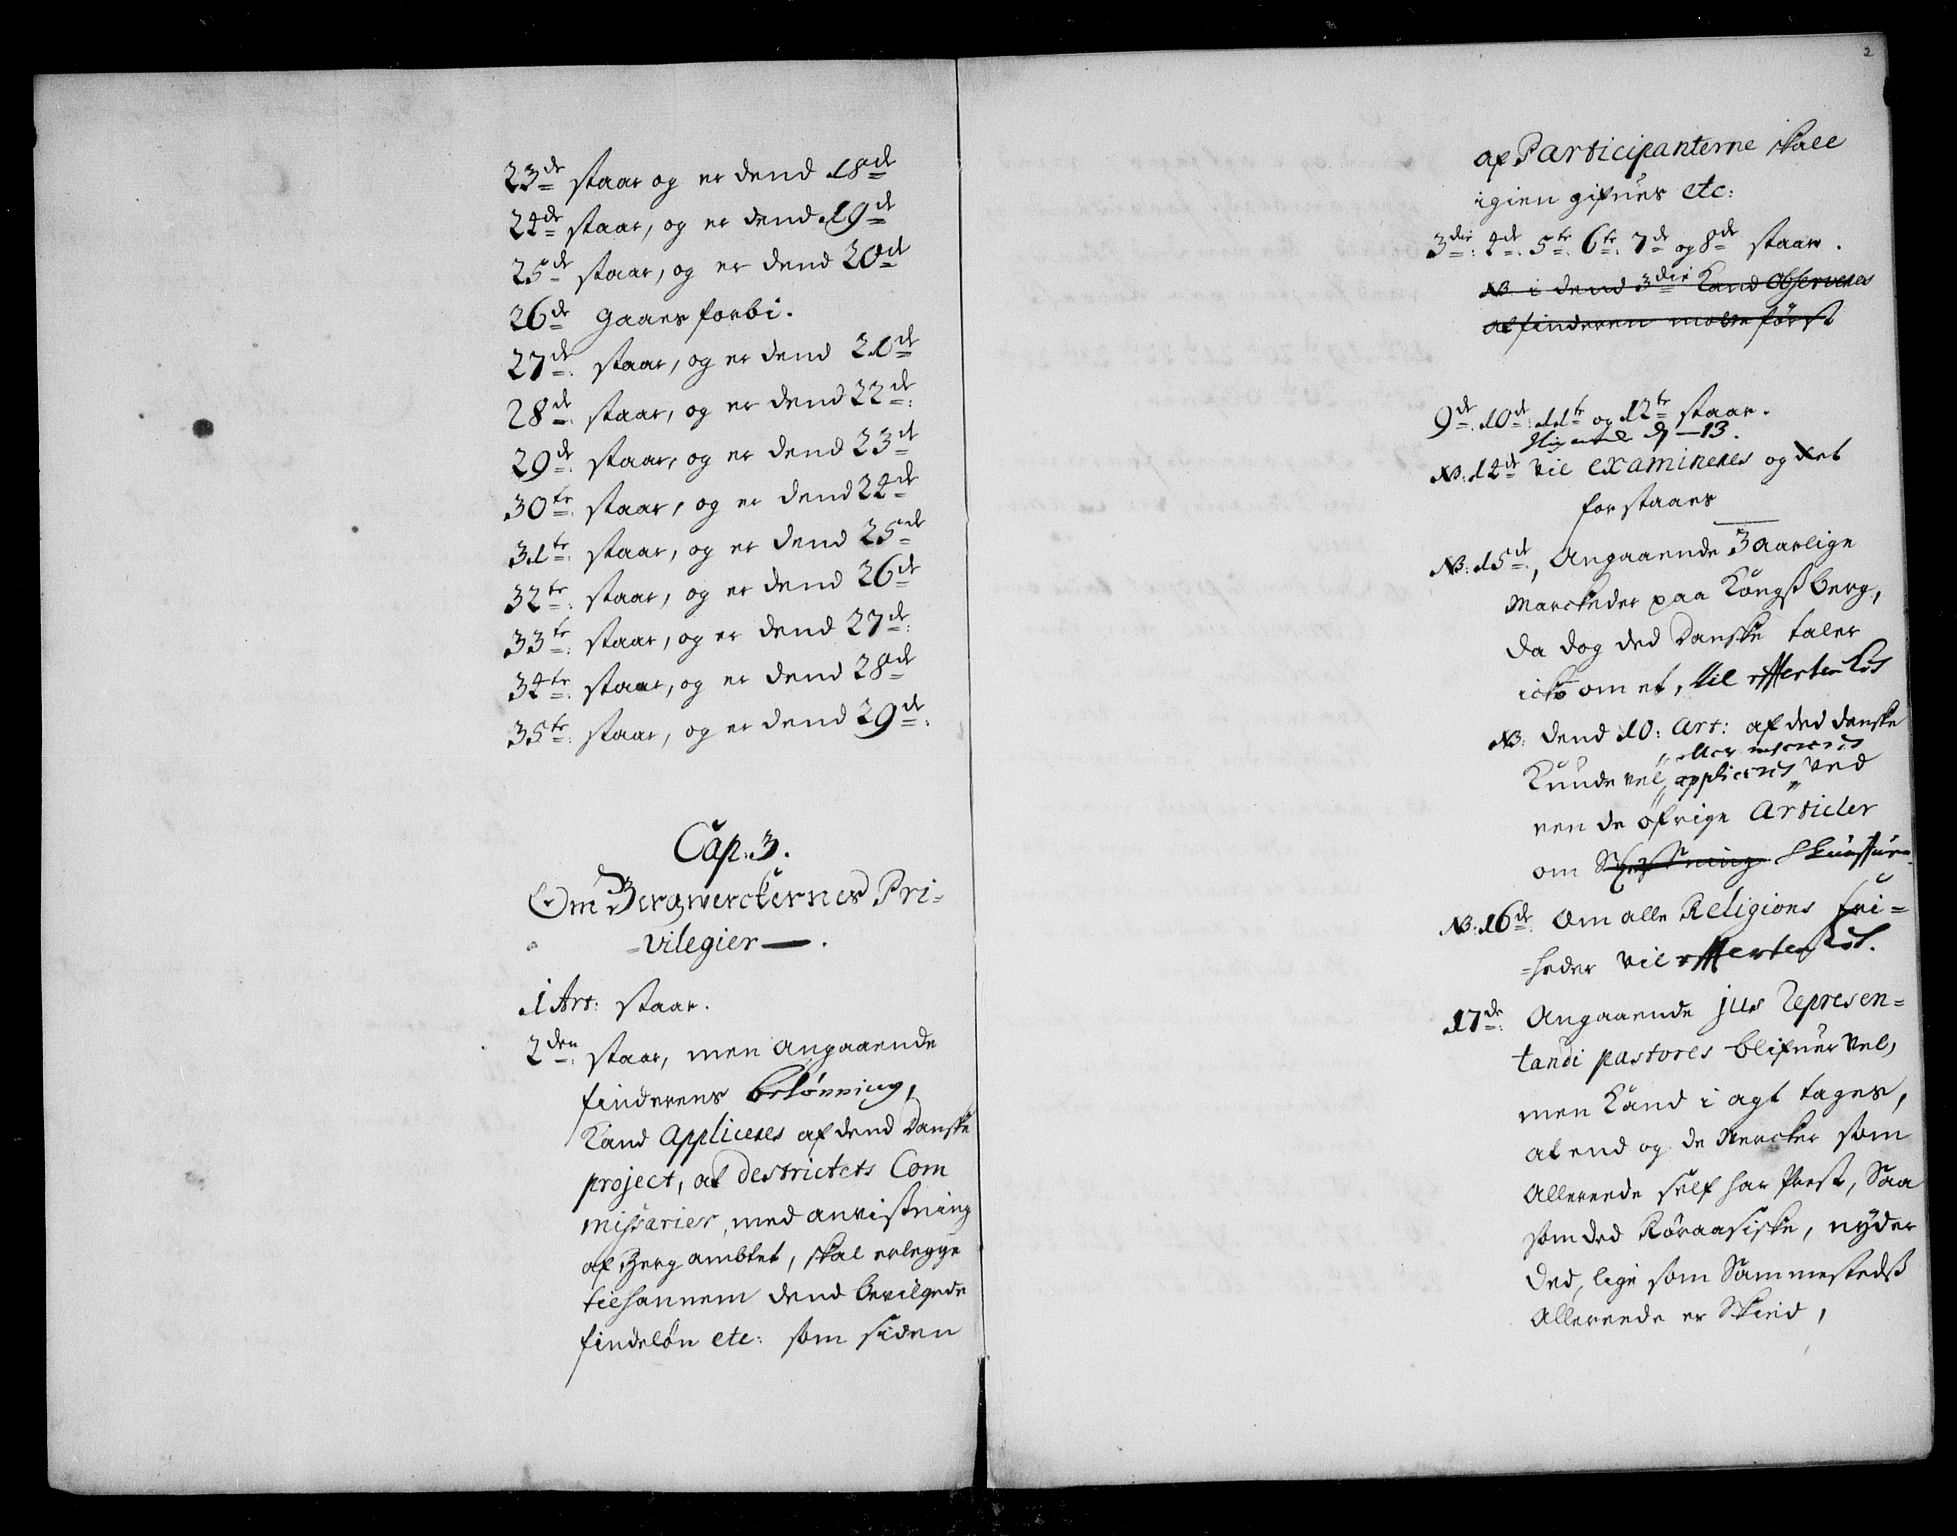 23de staar og er dend 18de
24de staar, og er dend 19de
25de staar, og er dend 20de
26de gaaes forbi.
27de staar, og er dend 21de
28de staar, og er dend 22de
29de staar, og er dend 23de
30te staar, og er dend 24de
31te staar, og er dend 25de
32te staar, og er dend 26de
33te staar, og er dend 27de
34te staar, og er dend 28de
35te staar, og er dend 29de
Cap: 3.
Om Bergwerckernes Pri=
=vilegier — .
1 Art: staar.
2den staar, men angaaende
finderens belønning,
kand appliceres af dend Danske
project, at destrictets Com
missarier, med anvißning
af Bergambtet, skal erlegge
til hannem dend bevilgede
findeløn etc: som siden
2
af Participanterne skall
igien gifves etc:
3die: 4de 5te 6te 7de og 8de staar.
NB i dend 3die kand observeres
at finderen maatte først
9de 10de 11te og 12te staar.
13.
NB: 14de vil examineres og ret
forstaaes
NB: 15de, Angaaende 3 aarlige
Marckeder paa Kongsberg,
da dog ded Danske taler
icke om et, vil eftertenkes
NB: dend 10: Art: af ded danske
eller insereres
kunde vel appliceres ved
en de øfrige Articler
om
NB: 16de Om alle Religions fri=
=heder vil eftertenkes.
17de Angaaende jus Represen=
tandi pastores blifver vel,
men kand i agt tages,
at end og de Wercker som
Allereede self har Prest, Saa
som ded Røraasiske, nyder
ded, lige som Sammestedß
Allereede er Skied,